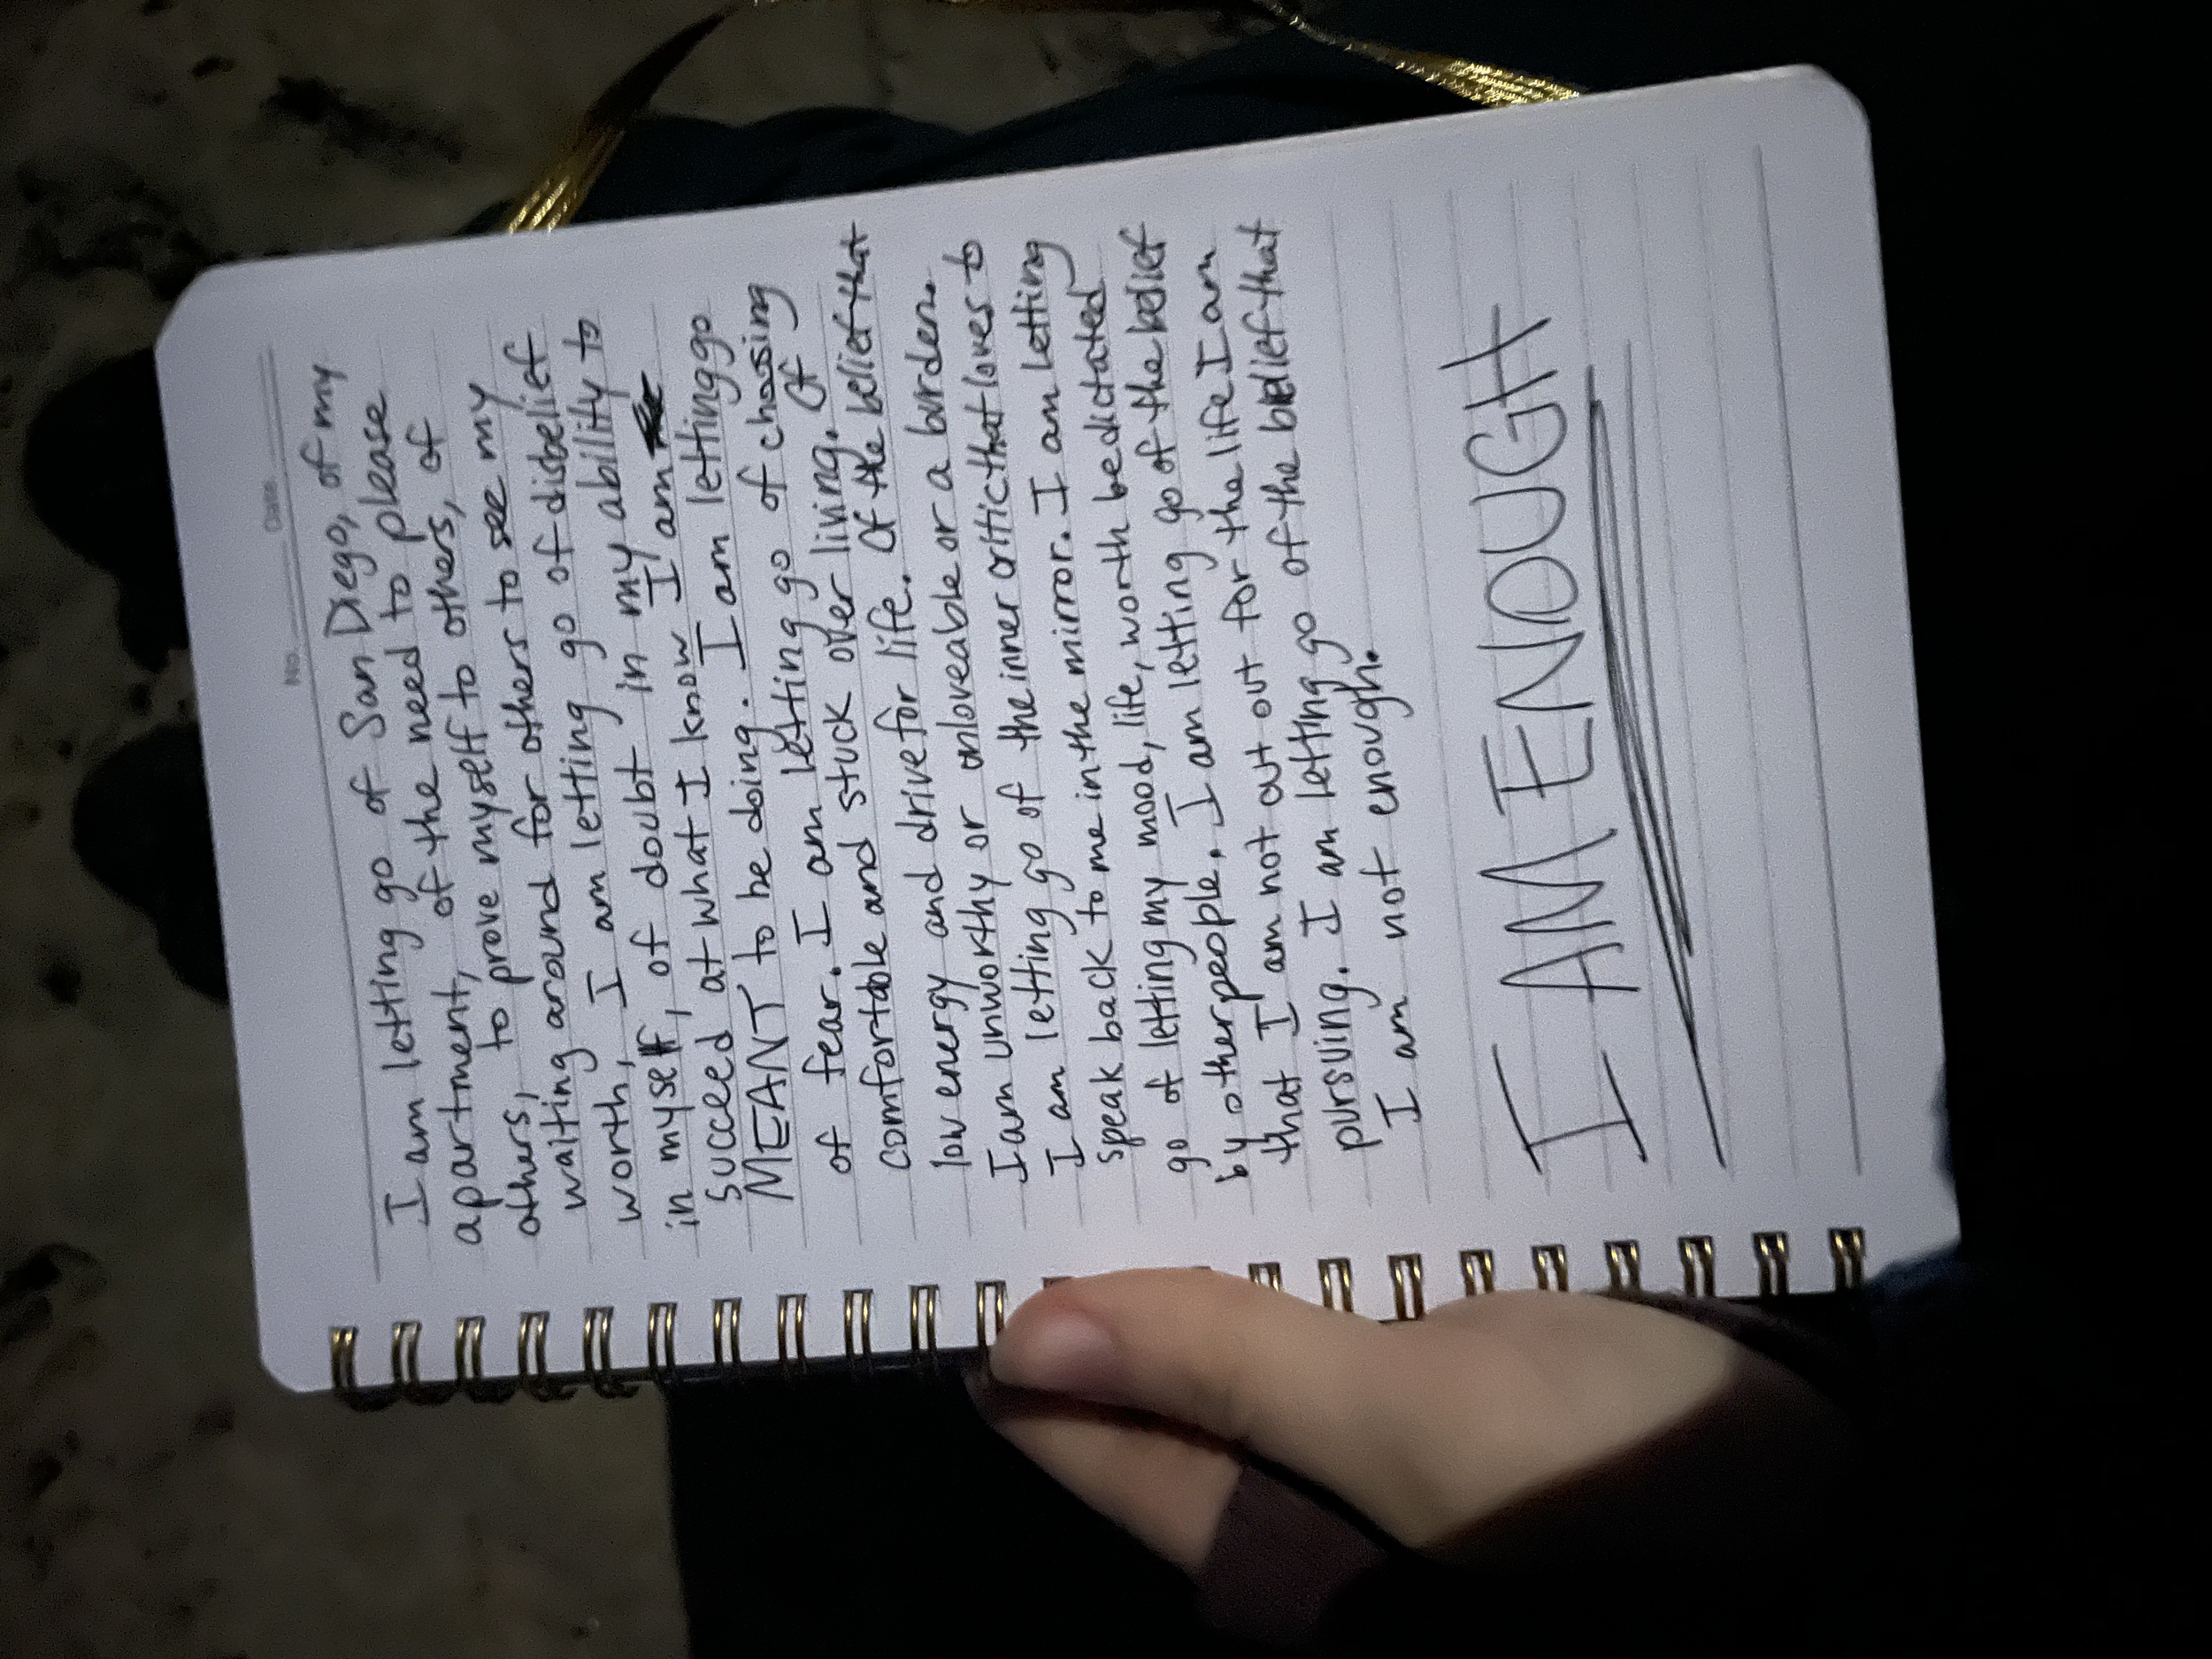 No. Date
I am letting go of San Diego, of my
apartment, of the need to please
others, to prove myself to others, of
waiting around for others to see my
worth, I am letting go of disbelief
in myself, of doubt in my ability to
succeed at what I know I am
MEANT to be doing. I am letting go
of fear. I am letting go of chasing
comfortable and stuck over living. Of
low energy and drive for life. Of the belief that
I am unworthy or unloveable or a burden.
I am letting go of the inner critic that loves to
speak back to me in the mirror. I am letting
go of letting my mood, life, worth be dictated
by other people. I am letting go of the belief
that I am not cut out for the life I am
pursuing. I am letting go of the belief that
I am not enough.
I AM ENOUGH